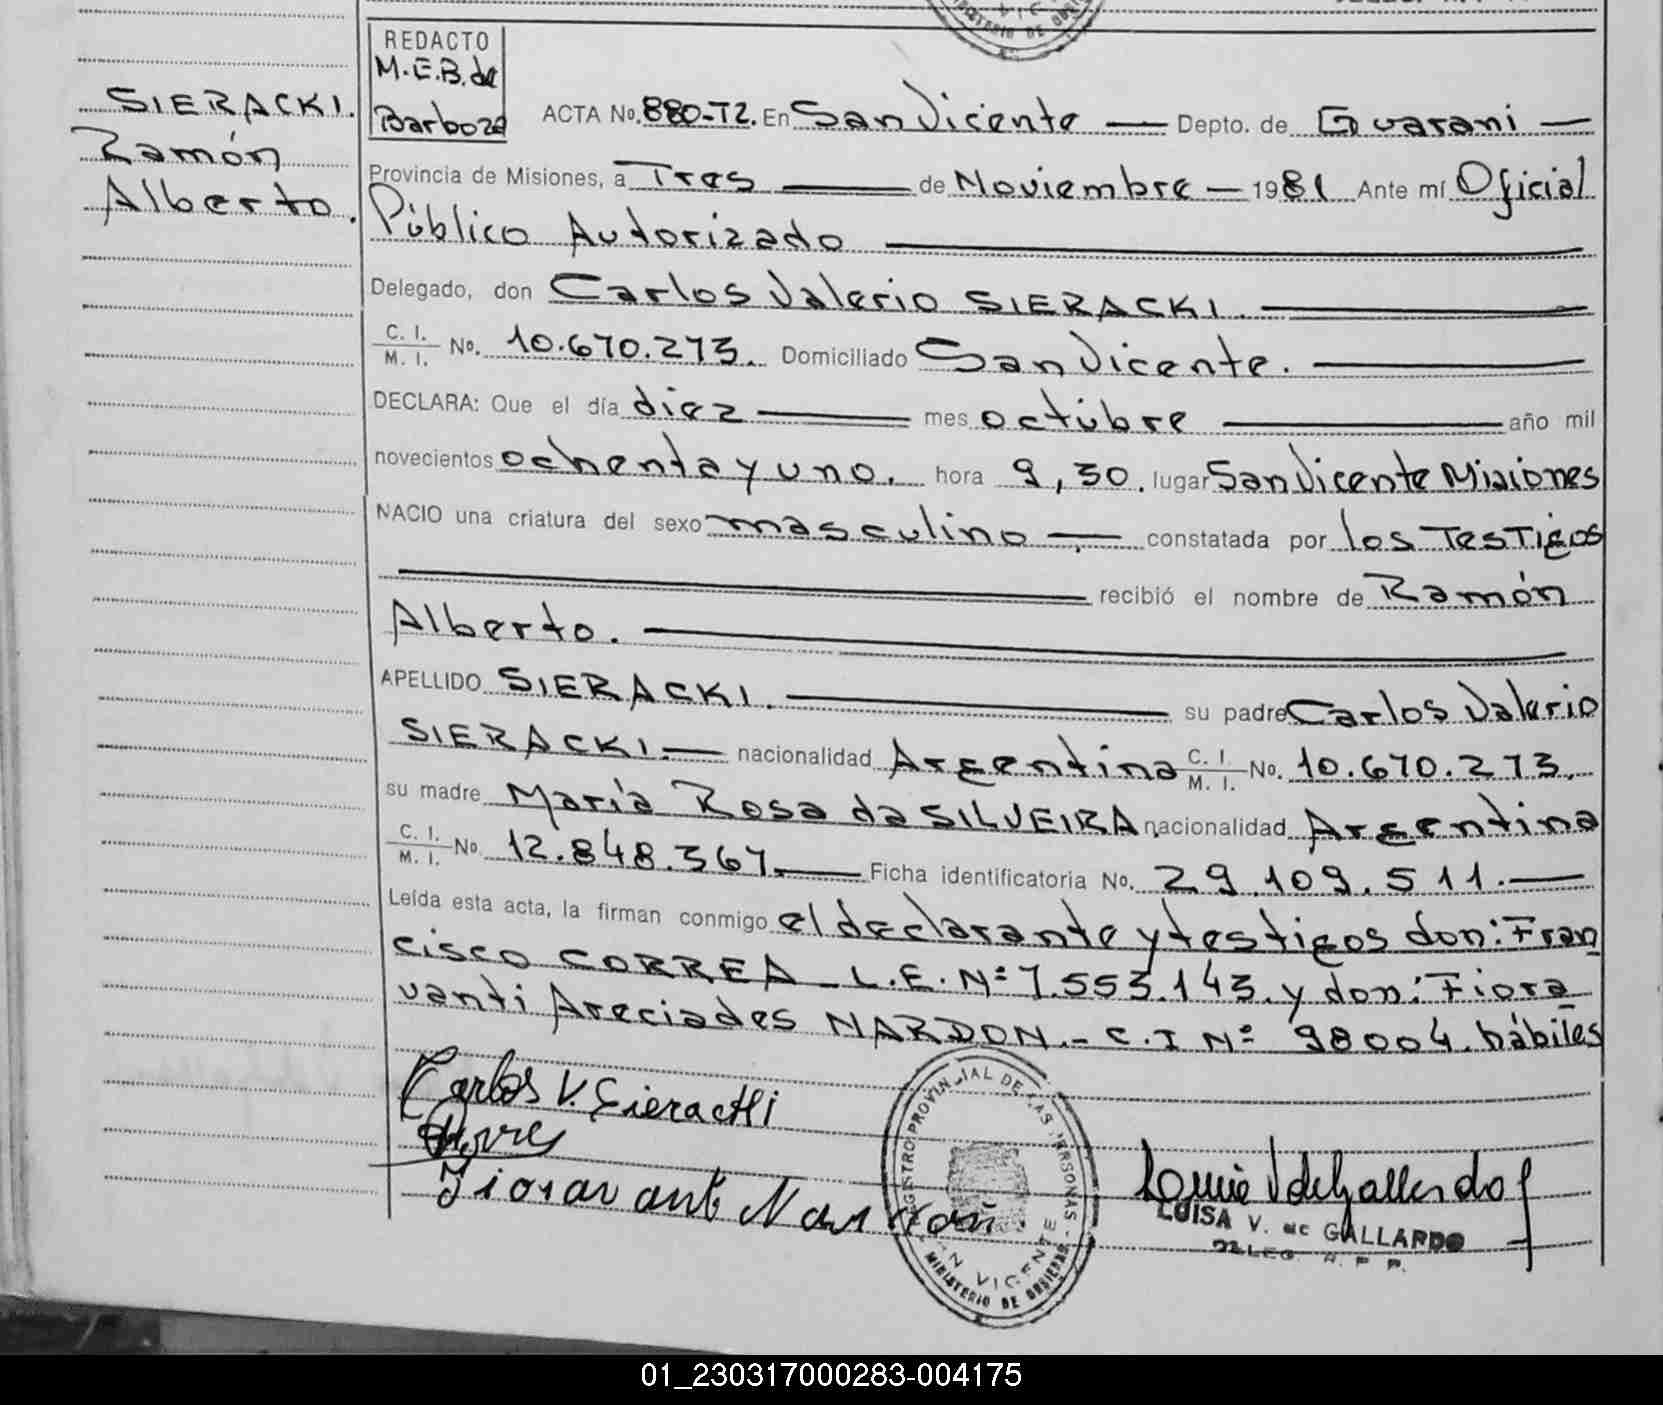 REDACTO
M.E.B. de
Barboza
SIERACKI.
Ramón
Alberto.
ACTA No. 880-T2. En San Vicente — Depto. de Guarani —
Provincia de Misiones, a Tres — de Noviembre — 1981 Ante mí Oficial
Público Autorizado —
Delegado, don Carlos Valerio SIERACKI. —
C. I. / M. I. No. 10.670.273. Domiciliado San Vicente. —
DECLARA: Que el día diez — mes octúbre — año mil
novecientos ochenta y uno. hora 9,30. lugar San Vicente Misiones
NACIO una criatura del sexo masculino — constatada por los Testigos
— recibió el nombre de Ramón
Alberto. —
APELLIDO SIERACKI. — su padre Carlos Valerio
SIERACKI. — nacionalidad Argentina C. I. / M. I. No. 10.670.273.
su madre María Rosa da SILVEIRA. nacionalidad Argentina
C. I. / M. I. No. 12.848.367. — Ficha identificatoria No. 29.109.511. —
Leída esta acta, la firman conmigo el declarante y testigos don: Fran
cisco CORREA - L.E. Nº 7.553.143. y don: Fiora
vanti Areciades NARDON.- C.I Nº 98004. hábiles
Carlos V. Sieracki
Fioravanti Nardon
REGISTRO PROVINCIAL DE LAS PERSONAS -
SAN VICENTE
MINISTERIO DE GOBIERNO
LUISA V. de GALLARDO
DELEG. R. P. P.
01_230317000283-004175